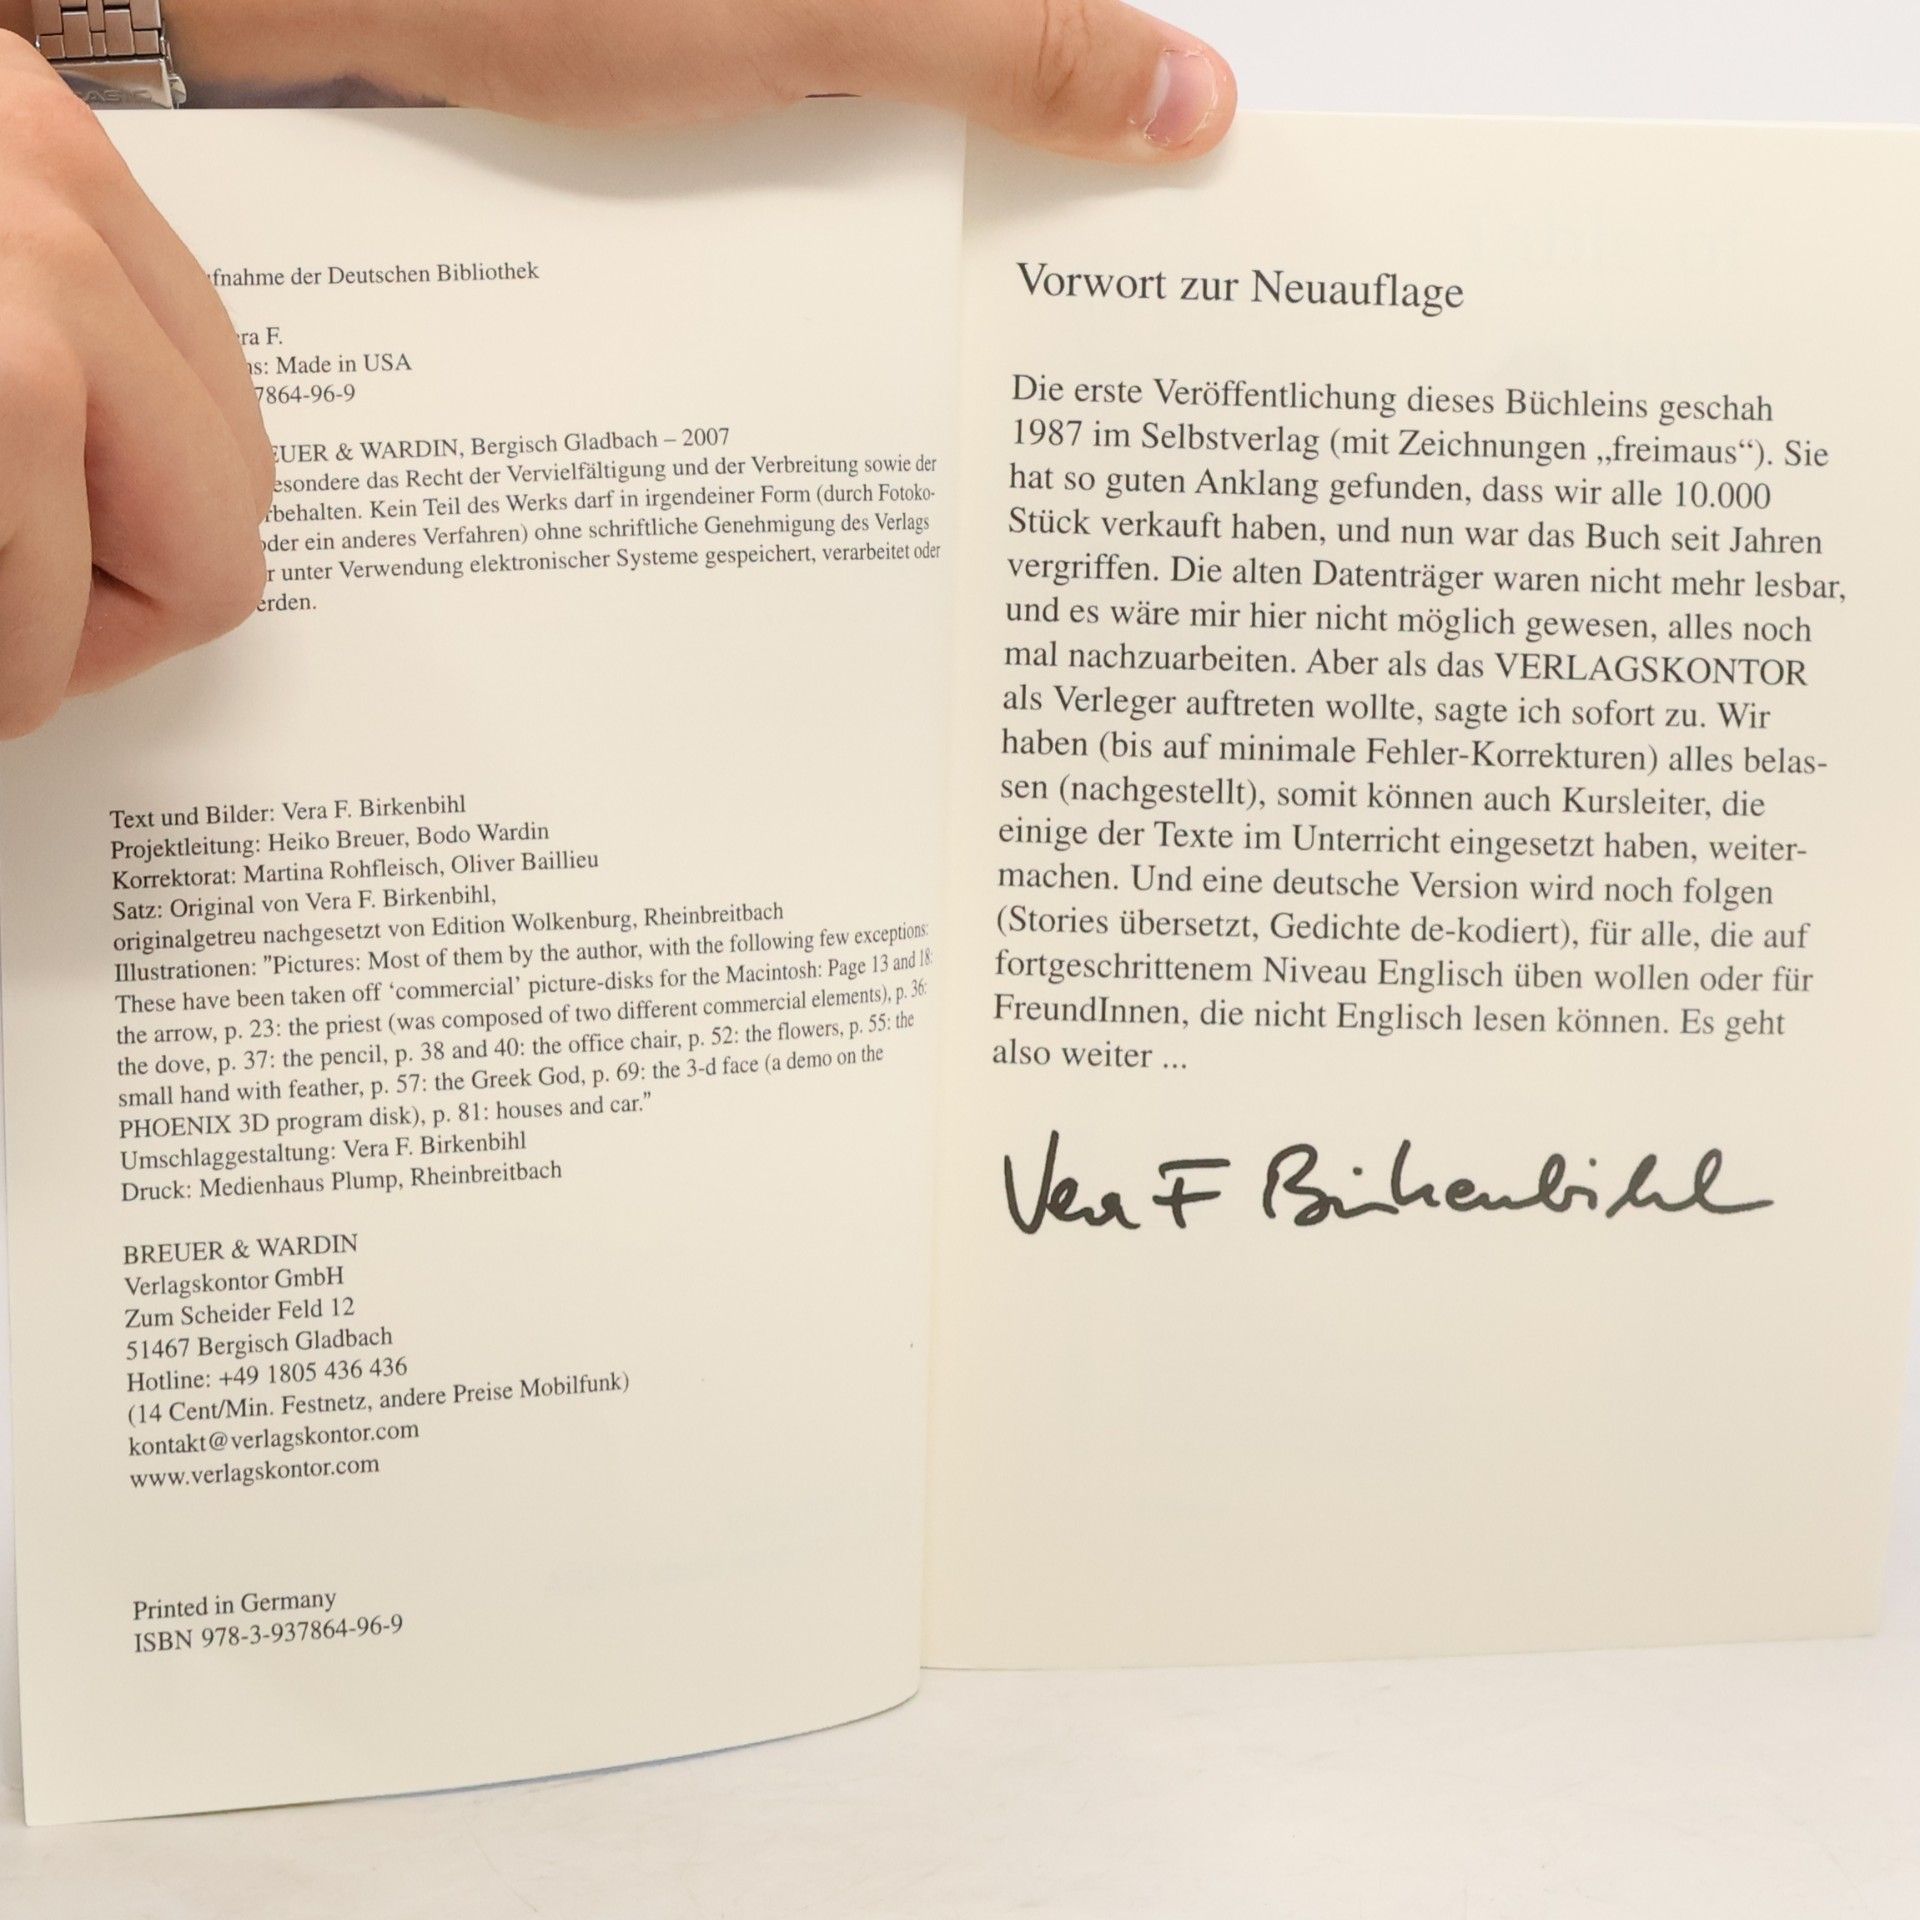 der Deutschen Bibliothek
F.
Made in USA
& WARDIN, Bergisch Gladbach – 2007
das Recht der Vervielfältigung und der Verbreitung sowie der
Kein Teil des Werks darf in irgendeiner Form (durch Fotoko-
oder ein anderes Verfahren) ohne schriftliche Genehmigung des Verlags
unter Verwendung elektronischer Systeme gespeichert, verarbeitet oder
Text und Bilder: Vera F. Birkenbihl
Projektleitung: Heiko Breuer, Bodo Wardin
Korrektorat: Martina Rohfleisch, Oliver Baillieu
Satz: Original von Vera F. Birkenbihl,
originalgetreu nachgesetzt von Edition Wolkenburg, Rheinbreitbach
Illustrationen: "Pictures: Most of them by the author, with the following few exceptions:
These have been taken off ‘commercial’ picture-disks for the Macintosh: Page 13 and 18:
the arrow, p. 23: the priest (was composed of two different commercial elements), p. 36:
the dove, p. 37: the pencil, p. 38 and 40: the office chair, p. 52: the flowers, p. 55: the
small hand with feather, p. 57: the Greek God, p. 69: the 3-d face (a demo on the
PHOENIX 3D program disk), p. 81: houses and car.”
Umschlaggestaltung: Vera F. Birkenbihl
Druck: Medienhaus Plump, Rheinbreitbach
BREUER & WARDIN
Verlagskontor GmbH
Zum Scheider Feld 12
51467 Bergisch Gladbach
Hotline: +49 1805 436 436
(14 Cent/Min. Festnetz, andere Preise Mobilfunk)
kontakt@verlagskontor.com
www.verlagskontor.com
Printed in Germany
ISBN 978-3-937864-96-9
Vorwort zur Neuauflage
Die erste Veröffentlichung dieses Büchleins geschah
1987 im Selbstverlag (mit Zeichnungen „freimaus“). Sie
hat so guten Anklang gefunden, dass wir alle 10.000
Stück verkauft haben, und nun war das Buch seit Jahren
vergriffen. Die alten Datenträger waren nicht mehr lesbar,
und es wäre mir hier nicht möglich gewesen, alles noch
mal nachzuarbeiten. Aber als das VERLAGSKONTOR
als Verleger auftreten wollte, sagte ich sofort zu. Wir
haben (bis auf minimale Fehler-Korrekturen) alles belas-
sen (nachgestellt), somit können auch Kursleiter, die
einige der Texte im Unterricht eingesetzt haben, weiter-
machen. Und eine deutsche Version wird noch folgen
(Stories übersetzt, Gedichte de-kodiert), für alle, die auf
fortgeschrittenem Niveau Englisch üben wollen oder für
FreundInnen, die nicht Englisch lesen können. Es geht
also weiter ...
Vera F Birkenbihl